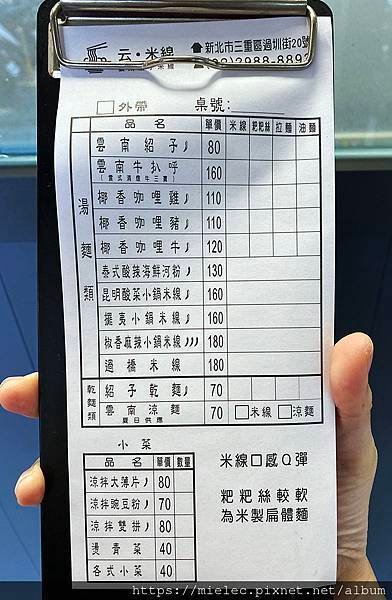 云·米線
新北市三重區過圳街20號
(02)2988-8892
外帶 桌號:
品名 單價 米線 粑粑絲 拉麵 油麵
湯麵類
雲南紹子 80
雲南牛扒呼 160
(雲式清燉牛三寶)
椰香咖哩雞 110
椰香咖哩豬 110
椰香咖哩牛 120
泰式酸辣海鮮河粉 130
昆明酸菜小鍋米線 160
擺夷小鍋米線 160
椒香麻辣小鍋米線 180
過橋米線 180
乾麵類
紹子乾麵 70
雲南涼麵 70 米線 涼麵
夏日供應
小菜
品名 單價 數量
涼拌大薄片 80
涼拌豌豆粉 70
涼拌雙拼 80
燙青菜 40
各式小菜 40
米線口感Q彈
粑粑絲較軟
為米製扁體麵
https://mielec.pixnet.net/album